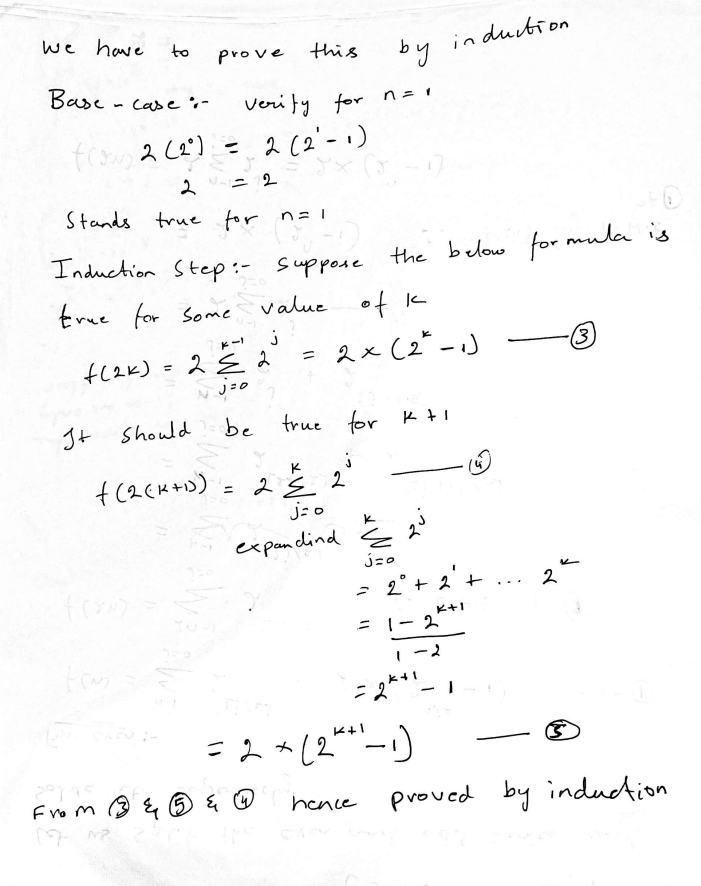 we have to prove this by induction
Base - case :- verify for n = 1
2 (2⁰) = 2 (2¹ - 1)
2 = 2
Stands true for n = 1
Induction Step :- suppose the below formula is
true for some value of k
f(2k) = 2 ∑_{j=0}^{k-1} 2^j = 2 × (2^k - 1) —— ③
It should be true for k + 1
f(2(k+1)) = 2 ∑_{j=0}^{k} 2^j —— ④
expandind ∑_{j=0}^{k} 2^j
= 2⁰ + 2¹ + ... 2^k
= (1 - 2^{k+1}) / (1 - 2)
= 2^{k+1} - 1
= 2 × (2^{k+1} - 1) —— ⑤
From ③ & ⑤ & ④ hence proved by induction